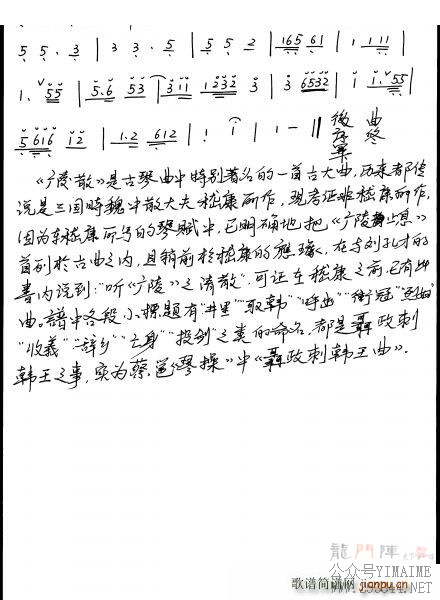 5 5 . 3 | 3 3 . 5 | 5 5 2 | 1 6 5 6 1 | 1 . 1 1 |
1 . 5 5 | 5 . 6 5 3 | 3 1 1 1 2 3 2 3 | 3 6 5 3 2 | 1 1 . 5 5 |
5 6 1 6 1 2 | 1 . 2 6 1 2 | 1 . 1 | 1 - ‖ 曲终
《广陵散》是古琴曲中特别著名的一首古大曲，历来都传
说是三国時魏中散大夫嵇康所作，现考证非嵇康所作，
因为在嵇康所写的琴賦中，已明确地把《广陵止息》
首列於古曲之内，且稍前於嵇康的應璩，在与刘孔才的
書内说到：“听《广陵》之清散”，可証在嵇康之前，已有此
曲。譜中各段小標題有“井里”“取韩”“呼幽”“衝冠”
“收義”“辞乡”“亡身”“投剑”之类的命名，都是聶政刺
韩王之事，实为蔡邕《琴操》中《聶政刺韩王曲》.
龍門陣
公众号YIMAIME
歌谱简谱网 jianpu.cn
WWW.DESIMAI.NET